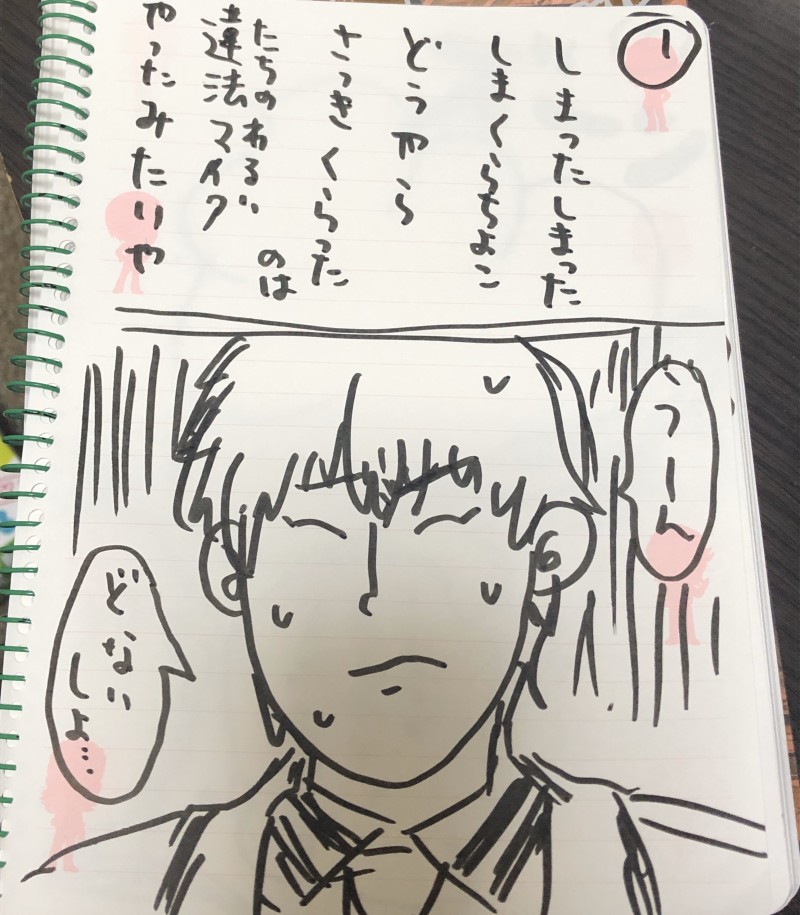 1
しまったしまった
しまくらちよこ
どうやら
さっきくらった
のは
たちのわるい
違法マイク
やったみたいや
うーん
どない
しよ…